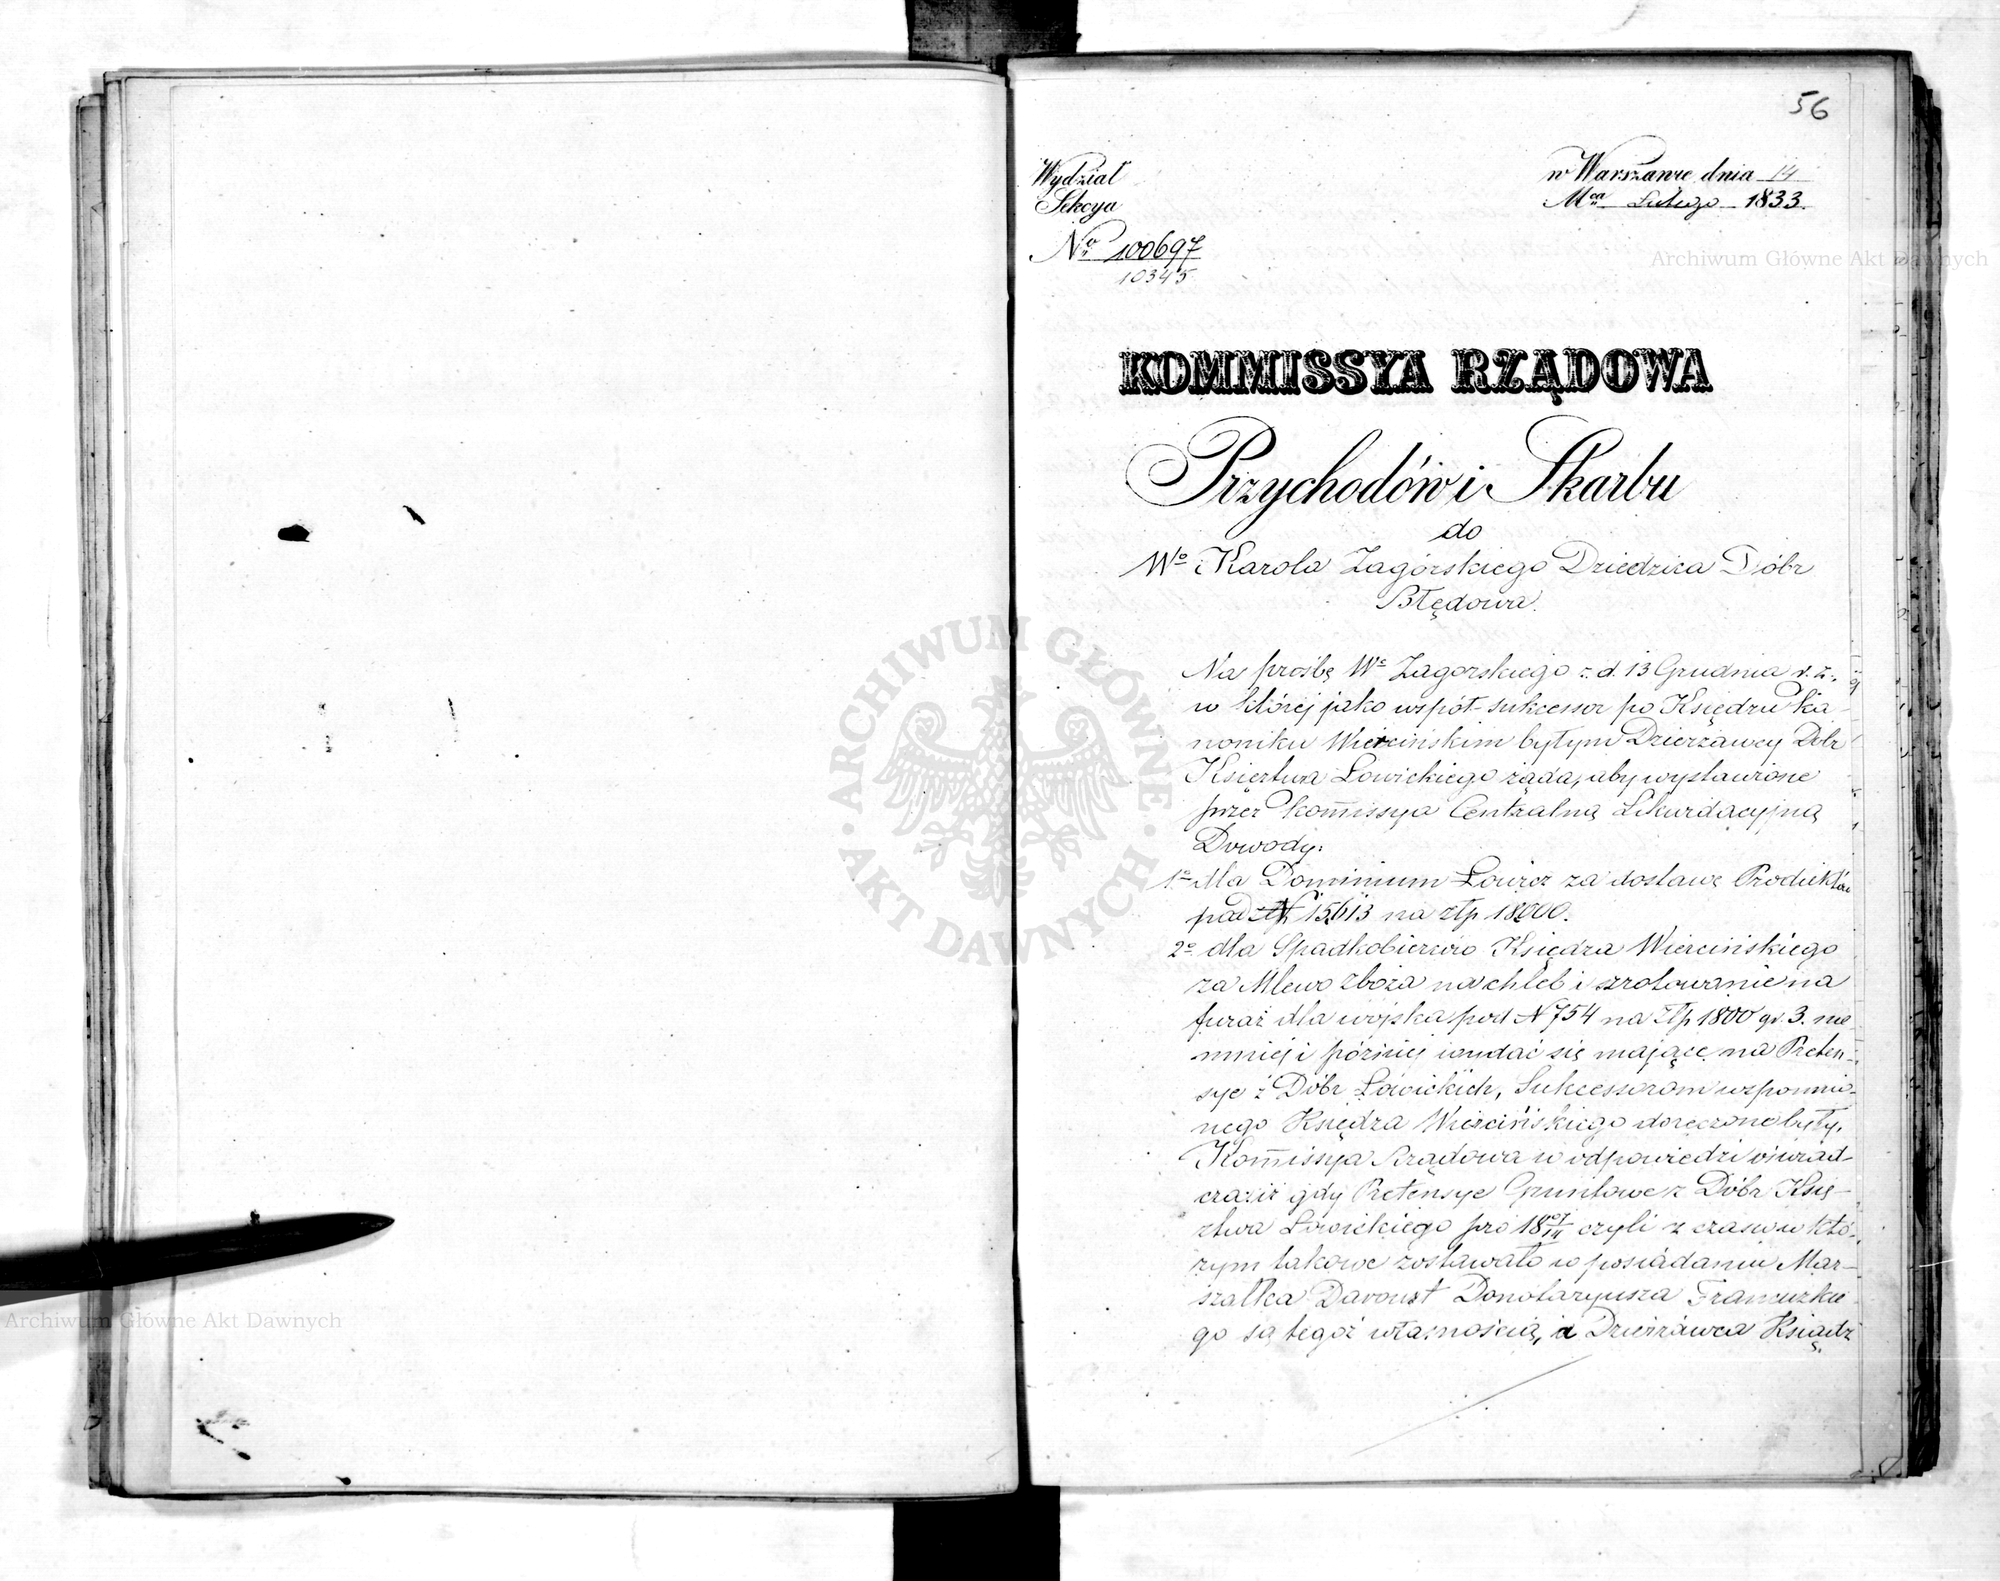 56
Wydział
Sekcya
w Warszawie dnia 14
Mca Lutego 1833.
No 100697
10345
KOMMISSYA RZĄDOWA
Przychodów i Skarbu
do
Wo Karola Zagórskiego Dziedzica Dóbr
Błędowa.
Na prośbę Wo Zagorskiego z d. 13 Grudnia r. z.,
w której jako współ-sukcessor po Księdzu Ka-
noniku Wiercińskim byłym Dzierżawcy Dóbr
Księztwa Łowickiego żąda, aby wystawione
przez Kommissya Centralną Likwidacyjną
Dowody:
1o dla Dominium Łowicz za dostawę Produktów
pod N 15613 na złp 18000.
2o dla Spadkobierców Księdza Wiercińskiego
za Mlewo zboża na chleb i srotowanie na
furaż dla wojska pod N 754 na Złp 1800 gr. 3. nie
mniej i później wydać się mające na Preten-
sye z Dóbr Łowickich, Sukcessorom wspomnio-
nego Księdza Wiercińskiego doręczone były,
Kommissya Rządowa w odpowiedzi oświad-
cza iż gdy Pretensye Gruntowe z Dóbr Księ-
ztwa Łowickiego pro 1807/14 czyli z czasu w któ-
rym takowe zostawało w posiadaniu Mar-
szałka Davoust Donotaryusza Francuzkie
go są tegoż własnością, a Dzierżawca Ksiądz
Archiwum Główne Akt Dawnych
ARCHIWUM GŁÓWNE · AKT DAWNYCH ·
Archiwum Główne Akt Dawnych